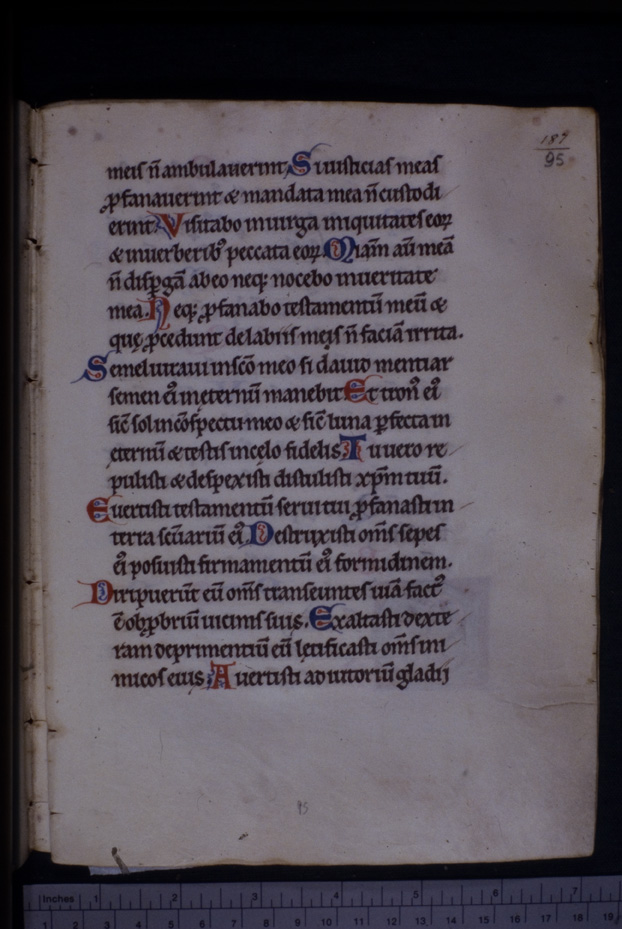 189
95
meis n̄ ambulauerint. Si iusticias meas
ꝓfanauerint & mandata mea n̄ custodi
erint. Visitabo in uirga iniquitates eoꝝ
& in uerberibꝰ peccata eoꝝ. Mīam aū meā
n̄ disꝑgā ab eo neq; nocebo in ueritate
mea. Neq; ꝓfanabo testamentū meū &
quę ꝓcedunt de labiis meis n̄ faciā irrita.
Semel iuraui in sc̄o meo si dauid mentiar
semen ei᷒ in eternū manebit. Et tron᷒ ei᷒
sic̄ sol in c̄ospectu meo & sic̄ luna ꝑfecta in
eternū & testis in celo fidelis. Tu uero re
pulisti & despexisti distulisti xp̄m tuū.
Euertisti testamentū serui tui ꝓfanasti in
terra sc̄uariū ei᷒. Destruxisti om̄s sepes
ei᷒ posuisti firmamentū ei᷒ formidinem.
Diripuer̄t eū om̄s transeuntes uiā fact᷒
ē obꝓbriū uicinis suis. Exaltasti dexte
ram deprimentiū eū lętificasti om̄s ini
micos eius. Auertisti adiutoriū gladij
95
Inches 1 2 3 4 5 6 7
1 2 3 4 5 6 7 8 9 10 11 12 13 14 15 16 17 18 19